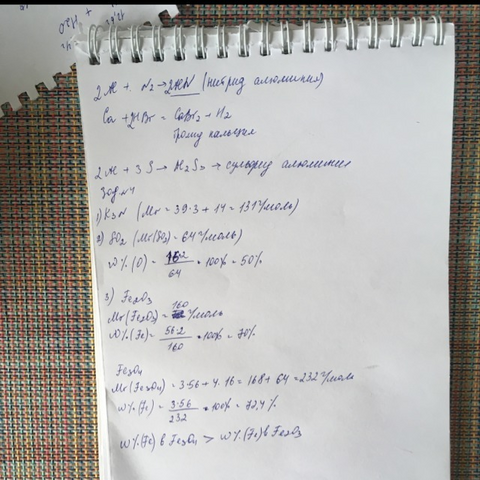 2Al + N2 → 2AlN (нитрид алюминия)
Ca + 2HBr = CaBr2 + H2
бромид кальция
2Al + 3S → Al2S3 → сульфид алюминия
Зад №1
1) K3N (Mr = 39·3 + 14 = 131 г/моль)
2) SO2 (Mr(SO2) = 64 г/моль)
W%(O) = 16·2/64 · 100% = 50%
3) Fe2O3
Mr(Fe2O3) = 160 г/моль
W%(Fe) = 56·2/160 · 100% = 70%
Fe3O4
Mr(Fe3O4) = 3·56 + 4·16 = 168 + 64 = 232 г/моль
W%(Fe) = 3·56/232 · 100% = 72,4%
W%(Fe) в Fe3O4 > W%(Fe) в Fe2O3
+ H2O